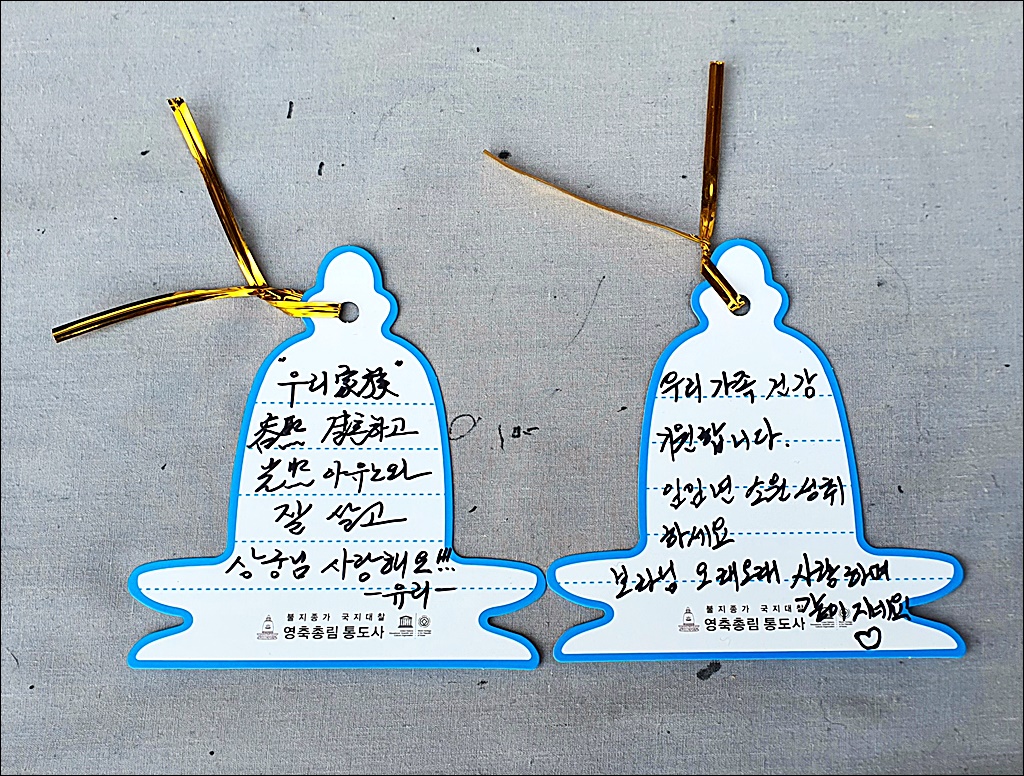 "우리家族"
春熙 結婚하고
光熙 아우느와
잘 살고
상중님 사랑해요!!!
-유리-
불지종가 국지대찰
영축총림 통도사
우리 가족 건강
기원합니다.
일 년 소원 성취
하세요
보라님 오래오래 사랑하며
같이 지내요!
♡
불지종가 국지대찰
영축총림 통도사